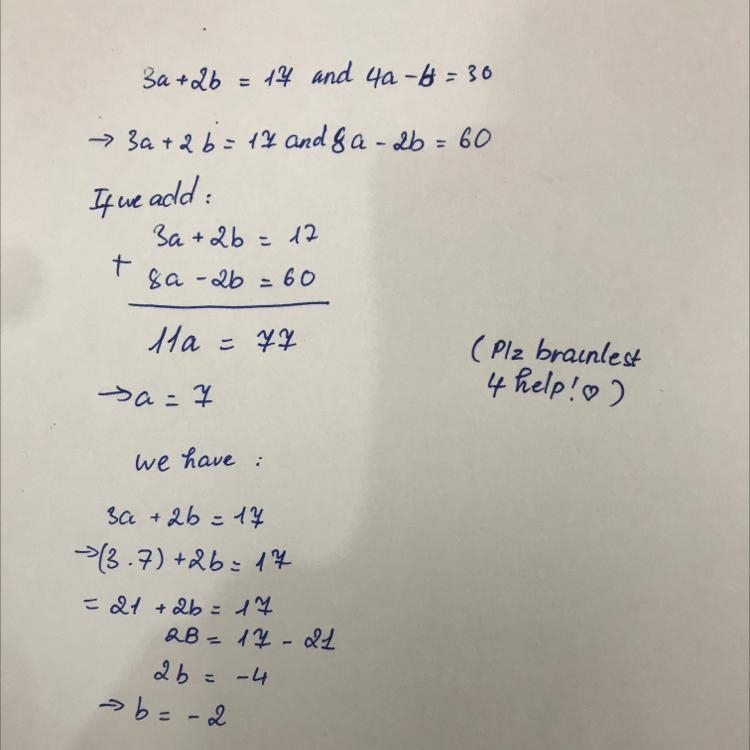 3a + 2b = 17 and 4a - b = 30
→ 3a + 2b = 17 and 8a - 2b = 60
If we add :
3a + 2b = 17
+
8a - 2b = 60
11a = 77
→ a = 7
(Plz brainlest
4 help! ♡)
we have :
3a + 2b = 17
→ (3 . 7) + 2b = 17
= 21 + 2b = 17
2B = 17 - 21
2b = -4
→ b = -2